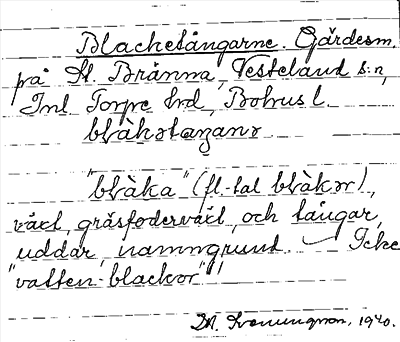 Blacketångarne. Gärdesm.
på St. Brånna, Vesteland s:n,
Inl Torpe hd, Bohus l.
blàkətaŋanə
"blàka" (fl-tal blàkər),
växt, gräsfoderväxt, och tångar,
uddar, namngrund. Icke
"vatten-blackor"!
1940.